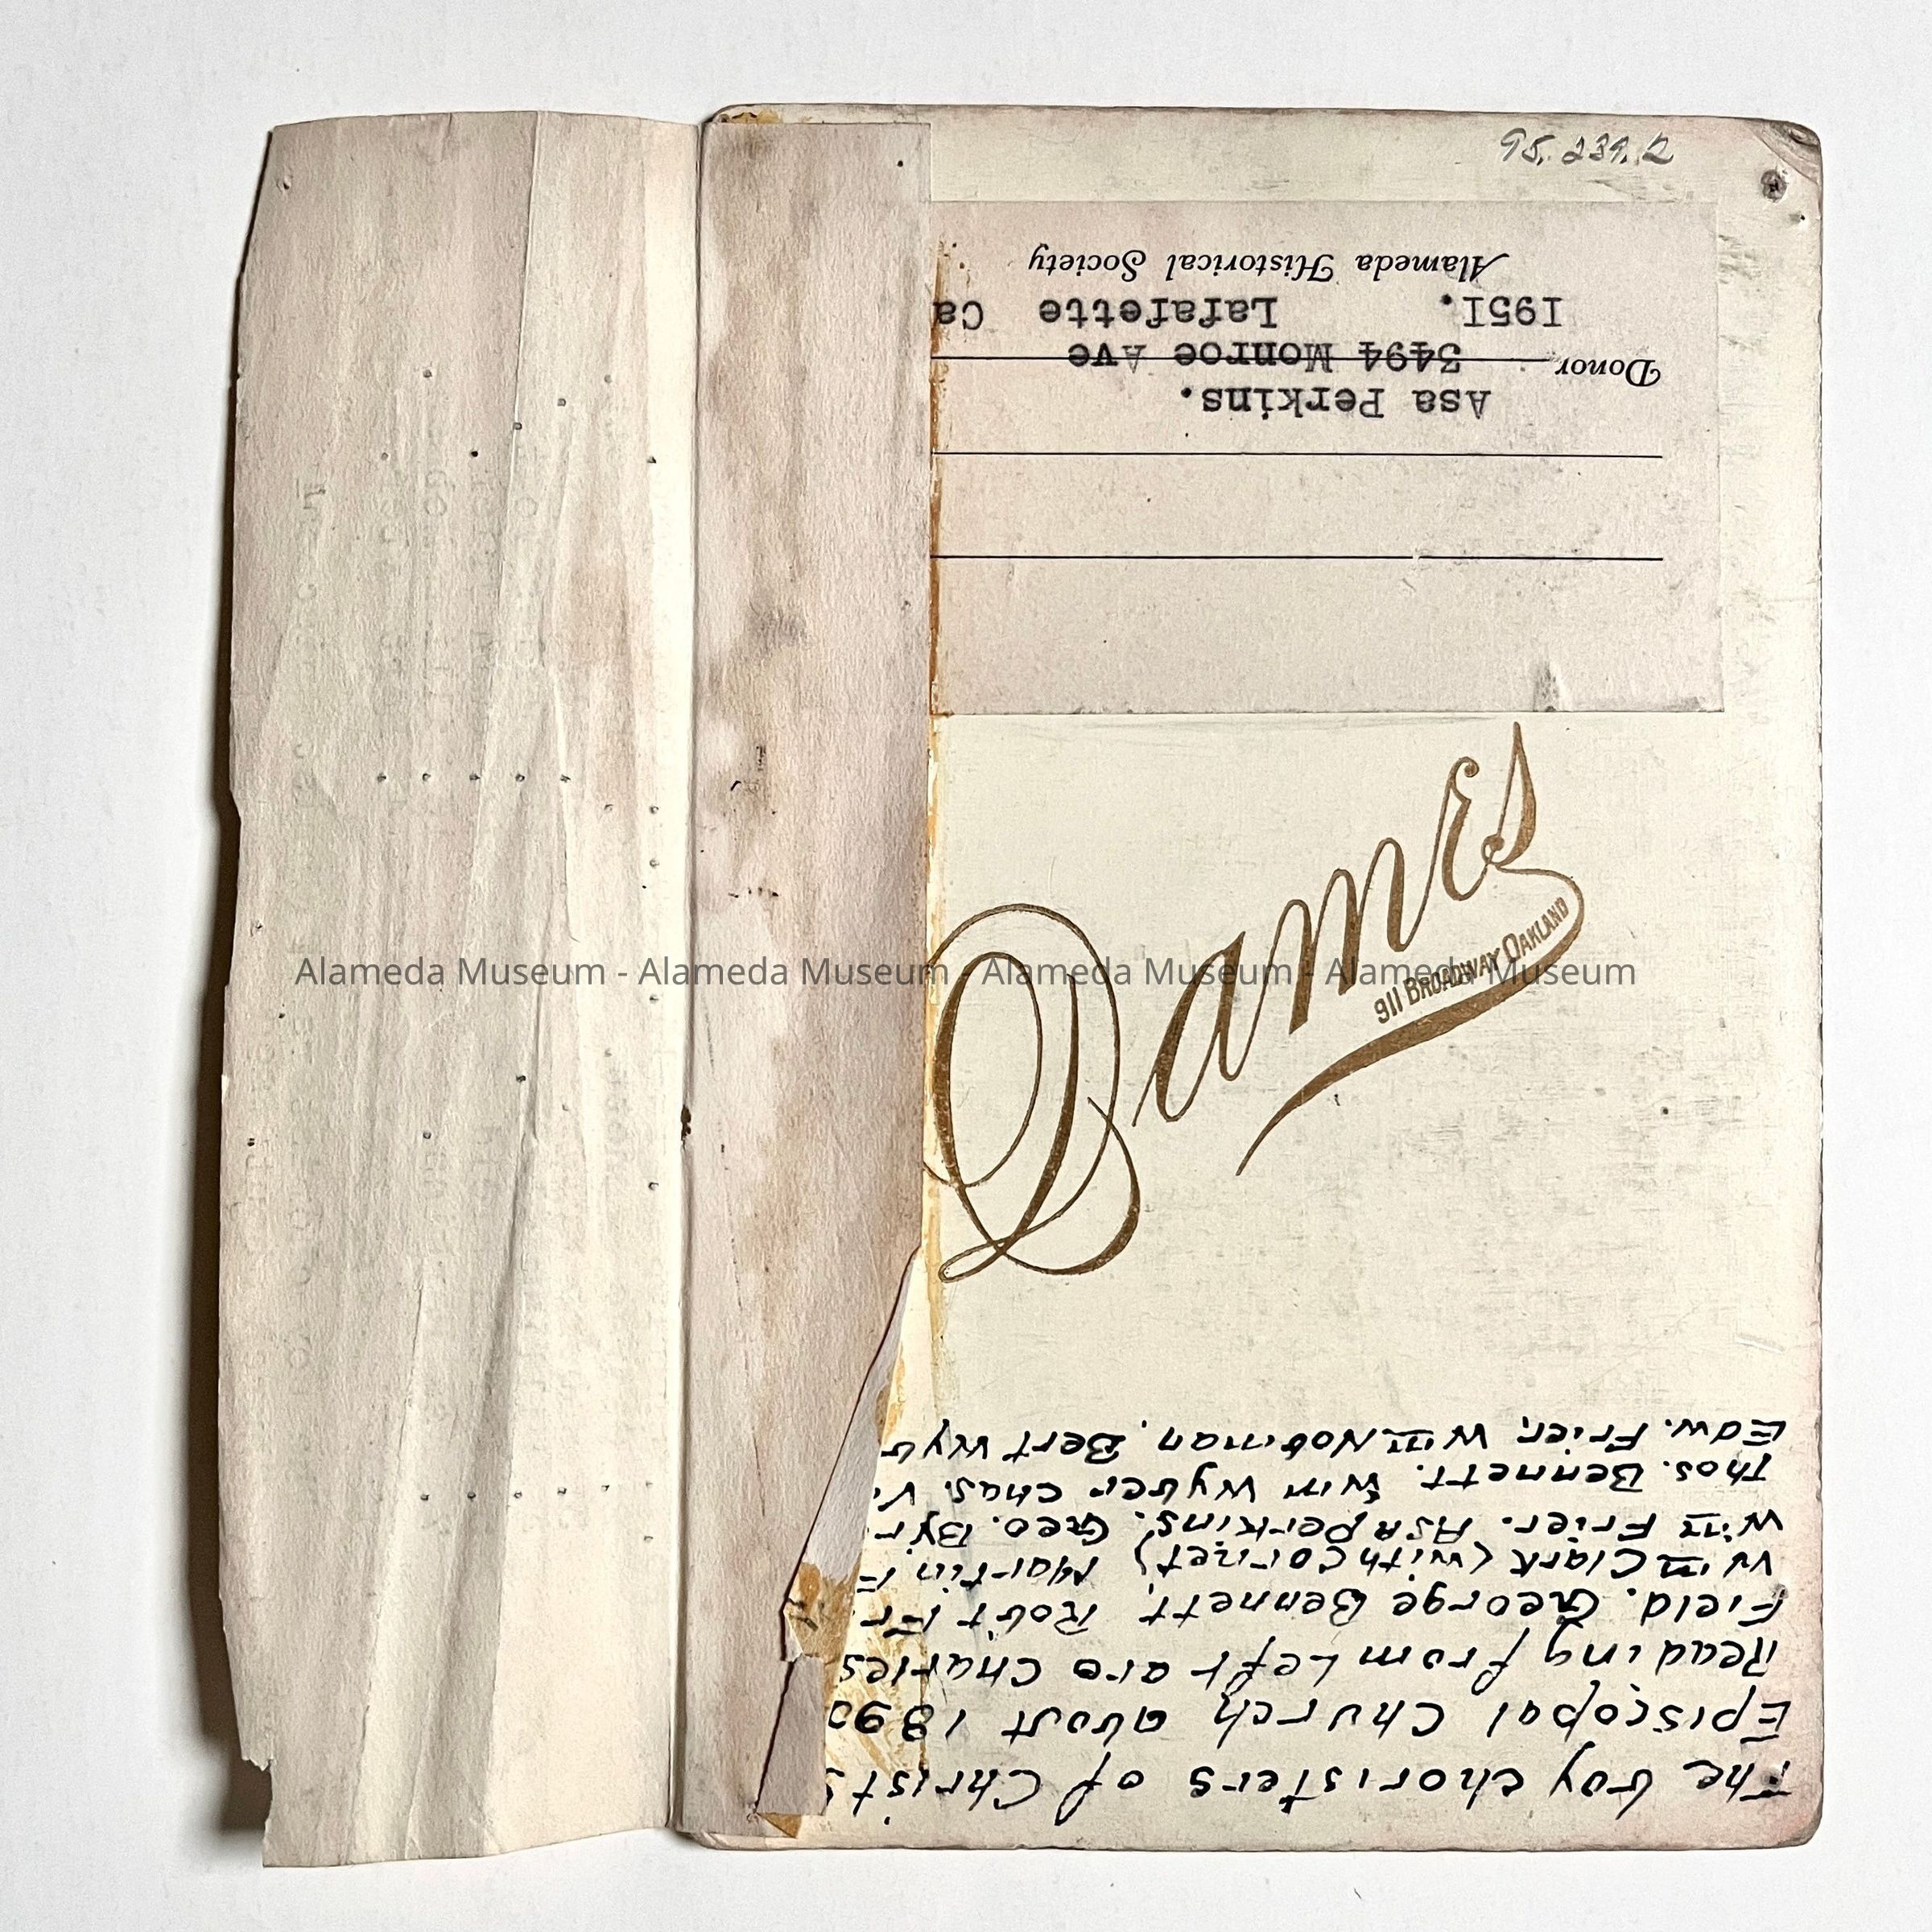 95.239.12
Alameda Historical Society
1951. Lafafette Ca
Donor 3494 Monroe Ave
Asa Perkins.
Dames
911 BROADWAY OAKLAND
Alameda Museum - Alameda Museum - Alameda Museum - Alameda Museum
The boy choristers of Christ
Episcopal Church about 189
Reading from Left are Charles
Field. George Bennett. Robt
Wm Clark (with cornet) Martin
Wm Frier. Asa perkins. Geo.
Thos. Bennett. Wm Wyber Chas.
Edw. Frier. Wm Nobman. Bert